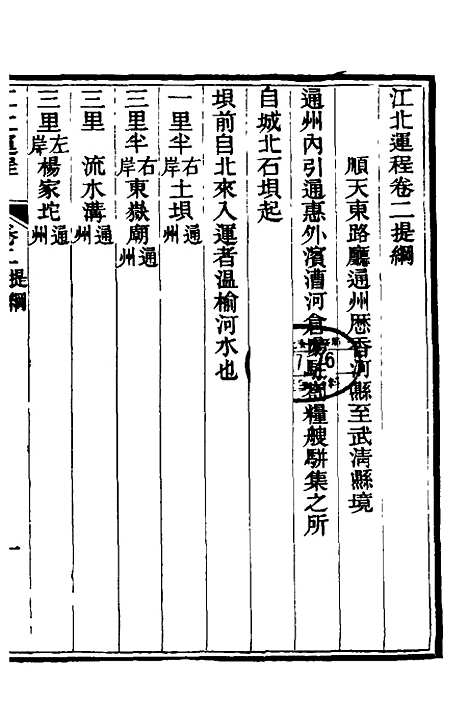 江北運程卷二提綱
順天東路廳通州歷香河縣至武清縣境
通州內引通惠外濱漕河倉場駐劄糧艘駢集之所
自城北石壩起
壩前自北來入運者溫榆河水也
一里半右岸土壩通州
三里半右岸東嶽廟通州
三里 流水溝通州
三里左岸楊家坨通州
江北運程 卷二提綱 一
76